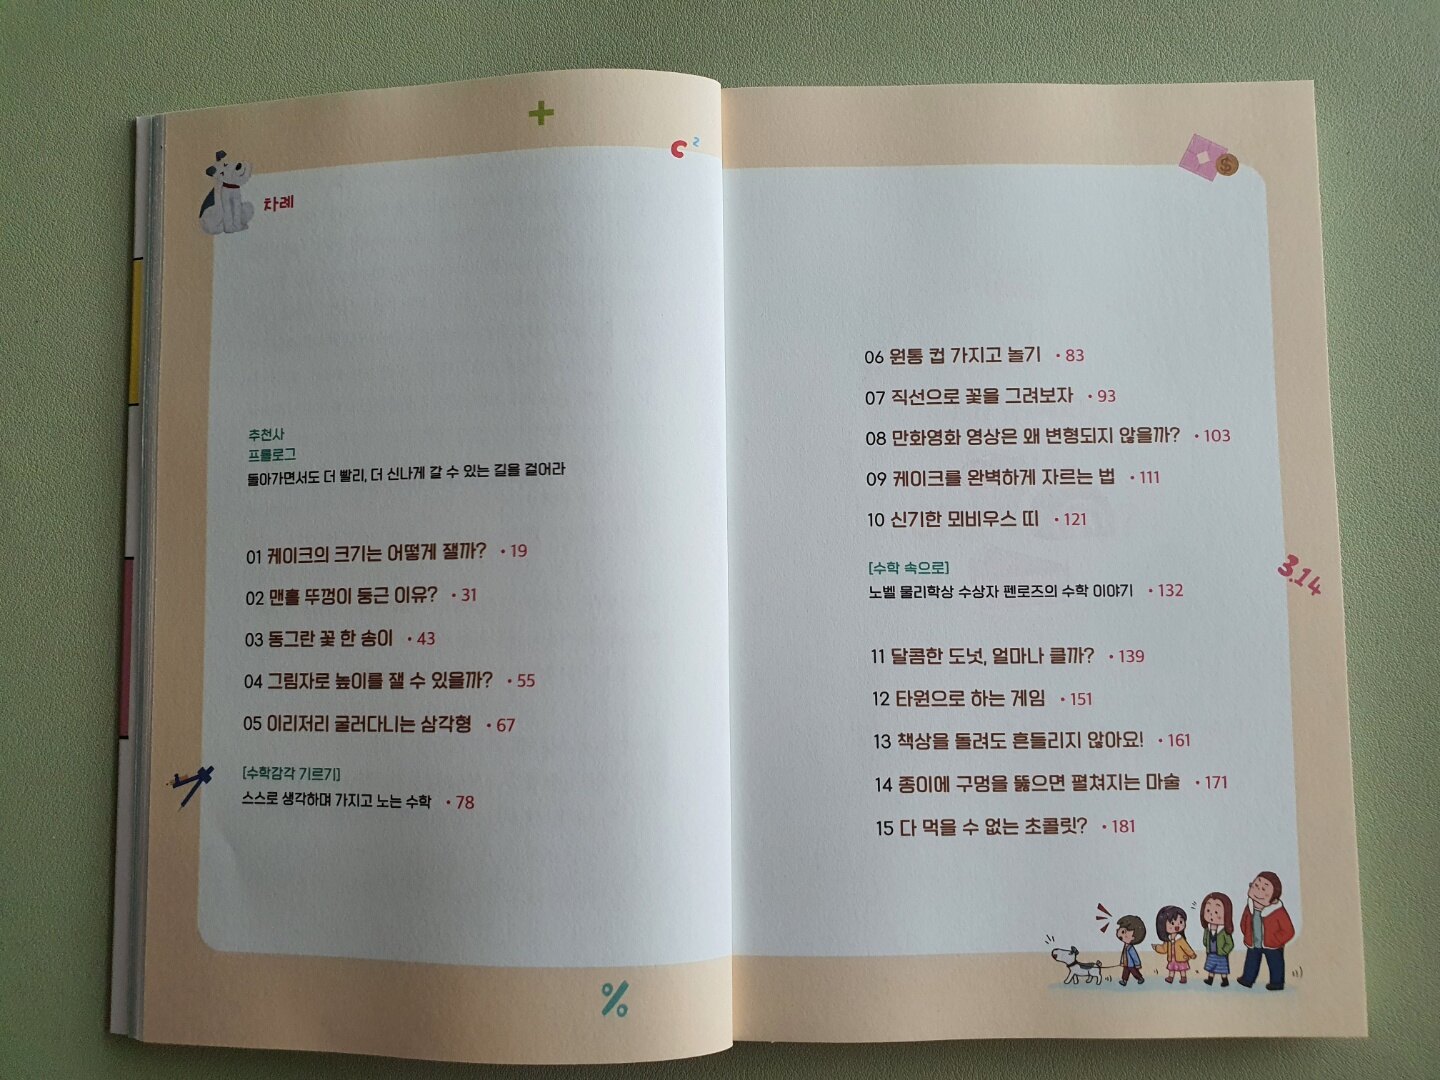 +
c²
차례
추천사
프롤로그
돌아가면서도 더 빨리, 더 신나게 갈 수 있는 길을 걸어라
01 케이크의 크기는 어떻게 잴까? • 19
02 맨홀 뚜껑이 둥근 이유? • 31
03 동그란 꽃 한 송이 • 43
04 그림자로 높이를 잴 수 있을까? • 55
05 이리저리 굴러다니는 삼각형 • 67
[수학감각 기르기]
스스로 생각하며 가지고 노는 수학 • 78
%
$
06 원통 컵 가지고 놀기 • 83
07 직선으로 꽃을 그려보자 • 93
08 만화영화 영상은 왜 변형되지 않을까? • 103
09 케이크를 완벽하게 자르는 법 • 111
10 신기한 뫼비우스 띠 • 121
[수학 속으로]
노벨 물리학상 수상자 펜로즈의 수학 이야기 • 132
3.14
11 달콤한 도넛, 얼마나 클까? • 139
12 타원으로 하는 게임 • 151
13 책상을 돌려도 흔들리지 않아요! • 161
14 종이에 구멍을 뚫으면 펼쳐지는 마술 • 171
15 다 먹을 수 없는 초콜릿? • 181